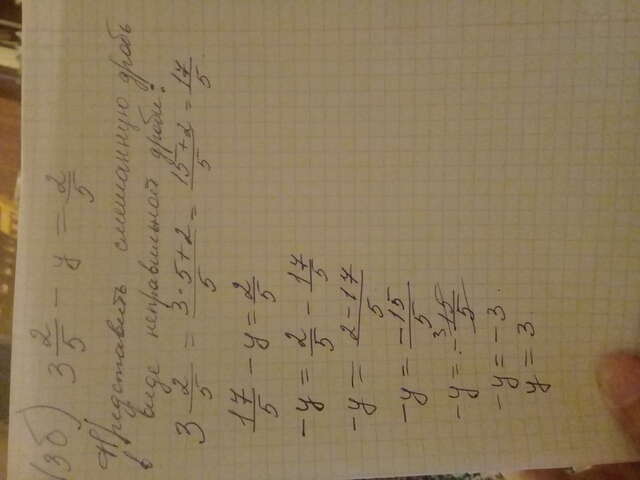 (3б) 3 2/5 - y = 2/5
Представить смешанную дробь
в виде неправильной дроби:
3 2/5 = 3·5+2/5 = 15+2/5 = 17/5.
17/5 - y = 2/5
-y = 2/5 - 17/5
-y = 2-17/5
-y = -15/5
-y = - 3 15/5
-y = -3.
y = 3.